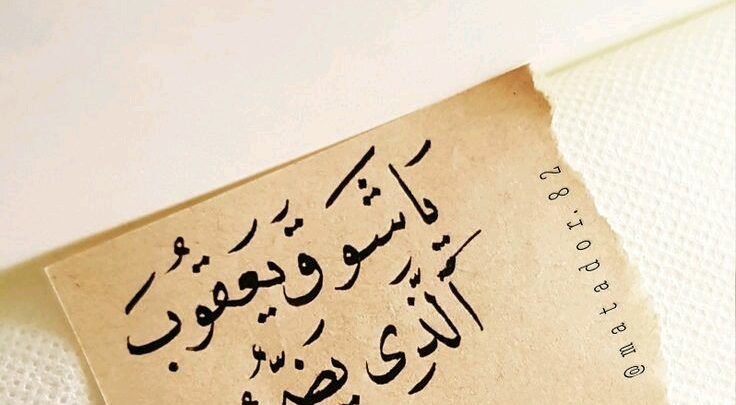 يا شوق يَعقوبَ
الَّذي
@matador.82